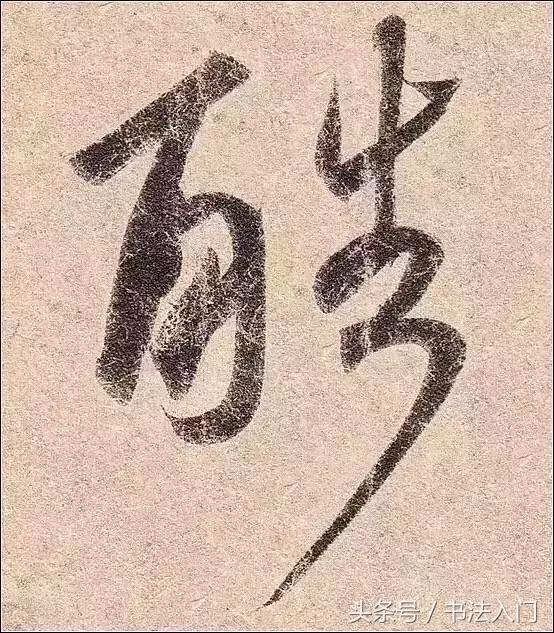 酷
头条号 / 书法入门